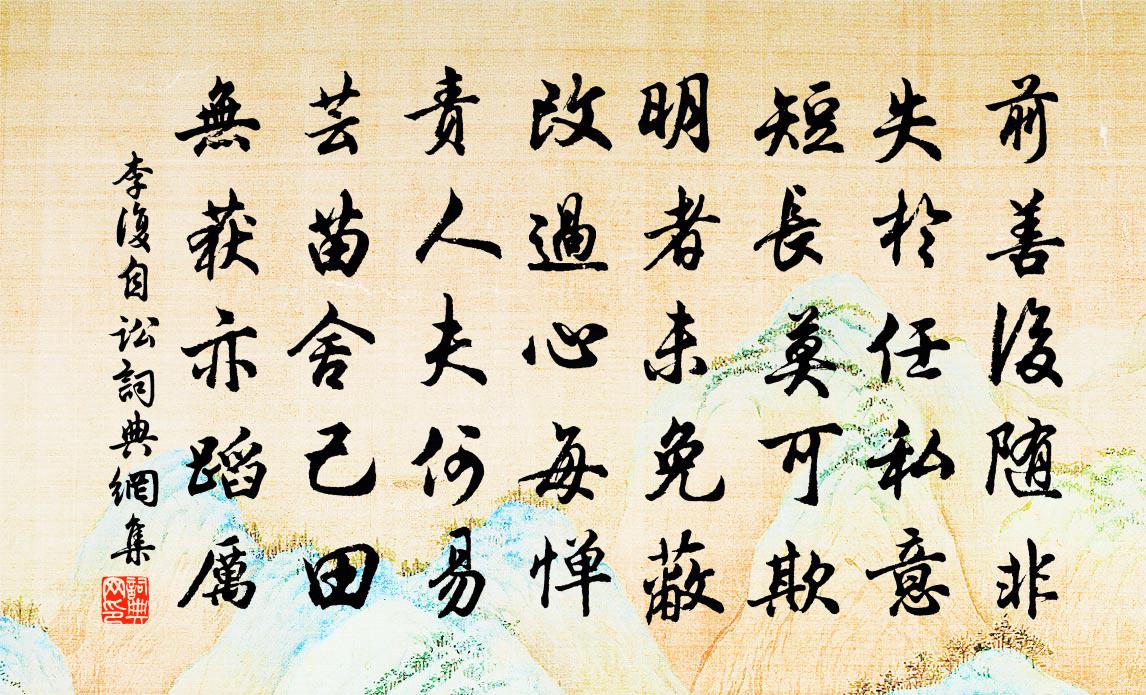 前善後随非
失於任私意
短長莫可欺
明者未免蔽
改過心每憚
責人夫何易
芸苗舍己田
無获亦蹈厲
李復自訟詞典網集
詞典網印